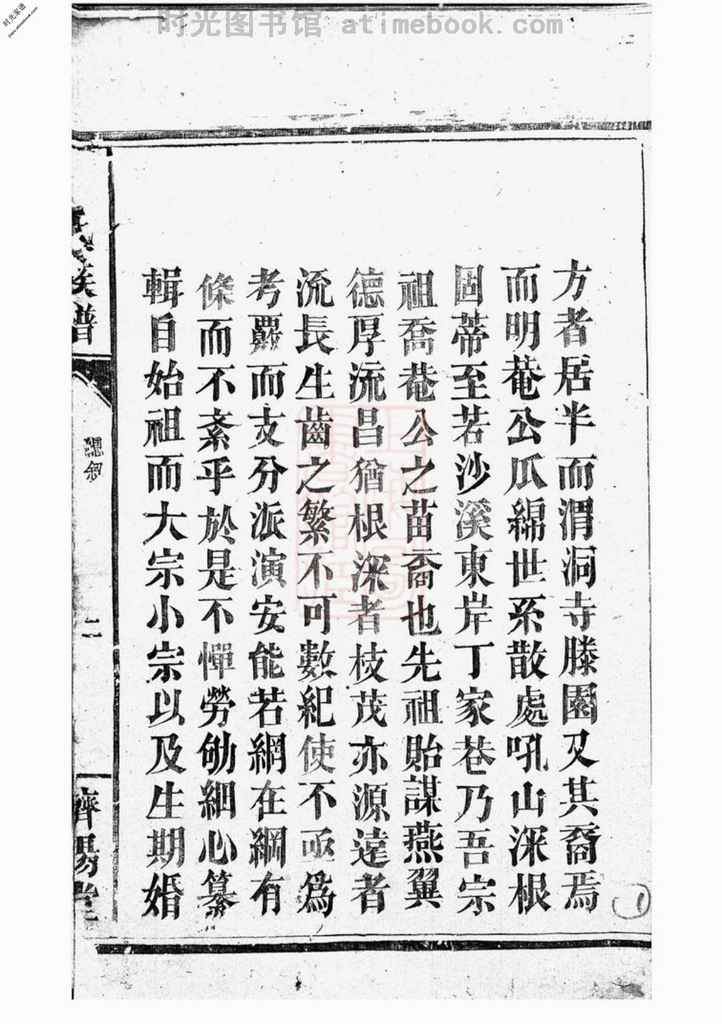 时光图书馆 atimebook.com
时光家谱
www.atimebook.com
方者居半而渭洞寺滕園又其裔焉
而明菴公瓜綿世系散處吼山深根
固蒂至若沙溪東岸丁家巷乃吾宗
祖喬菴公之苗裔也先祖貽謀燕翼
德厚流昌猶根深者枝茂亦源遠者
流長生齒之繁不可數紀使不亟為
考覈而支分派演安能若網在綱有
條而不紊乎於是不憚勞劬細心纂
輯自始祖而大宗小宗以及生期婚
氏族譜
總敘
二
濟陽堂